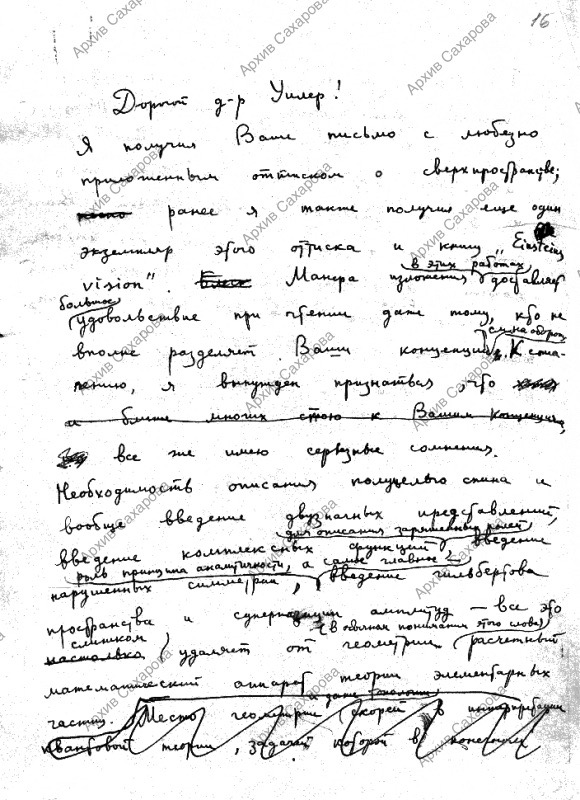 16
Дорогой д-р Уилер!
Я получил Ваше письмо с любезно
приложенным оттиском о сверхпространстве;
ранее я также получил еще один
экземпляр этого оттиска и книгу „Einstein's
vision". Манера изложения в этих работах доставляет
большое удовольствие при чтении даже тому, кто не
вполне разделяет Ваши концепции. К сожа-
лению, я вынужден признаться, что
я ближе многих стою к Вашим концепциям,
все же имею серьезные сомнения.
Необходимость описания полуцелого спина и
вообще введение двузначных представлений,
для описания заряженных полей
введение комплексных функций, введение
роль принципа аналитичности, а самое главное –
нарушенных симметрий, введение гильбертова
пространства и суперпозиции амплитуд — все это
(в обычном понимании этого слова)
слишком удаляет от геометрии расчетный
настолько
математический аппарат теории элементарных
частиц. Место геометрии скорей в интерпретации
квантовой теории, задачей которой в конечном
Архив Сахарова
Архив Сахарова
Архив Сахарова
Архив Сахарова
Архив Сахарова
Архив Сахарова
Архив Сахарова
Архив Сахарова
Архив Сахарова
Архив Сахарова
Архив Сахарова
Архив Сахарова